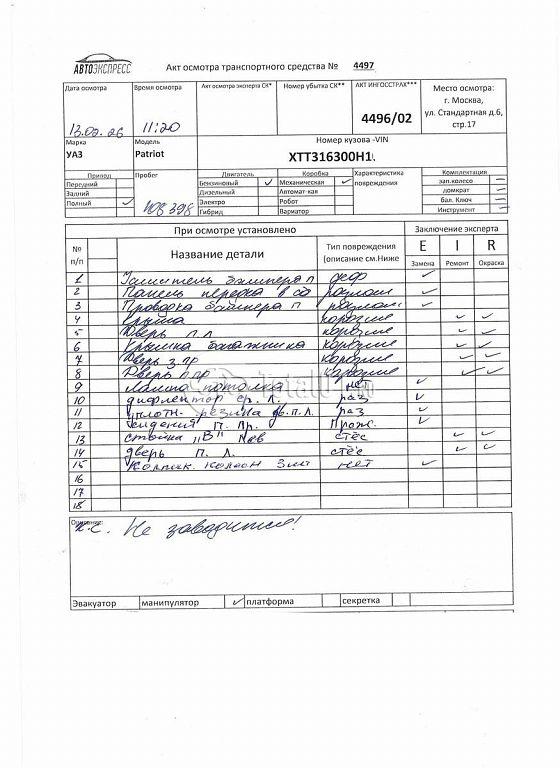 АВТОЭКСПРЕСС
Акт осмотра транспортного средства № 4497
Дата осмотра
13.02.26
Время осмотра
11:20
Акт осмотра эксперта СК*
Номер убытка СК**
АКТ ИНГОССТРАХ***
4496/02
Место осмотра:
г. Москва,
ул. Стандартная д.6,
стр.17
Марка
УАЗ
Модель
Patriot
Номер кузова -VIN
XTT316300H1
Привод
Передний
Задний
Полный ✓
Пробег
108 398
Двигатель
Бензиновый ✓
Дизельный
Электро
Гибрид
Коробка
Механическая ✓
Автомат-кая
Робот
Вариатор
Характеристика
повреждения
Комплектация
зап.колесо –
домкрат –
бал. Ключ –
Инструмент –
При осмотре установлено
Заключение эксперта
№
п/п
Название детали
Тип повреждения
(описание см.Ниже
E I R
Замена Ремонт Окраска
1 Усилитель бампера п деф ✓
2 Панель передка в сб разлом ✓
3 Проводка бампера п разлом ✓
4 Крыша корозие ✓ ✓
5 Дверь п л корозие ✓ ✓
6 Крышка багажника корозие ✓ ✓
7 Дверь з пр корозие ✓ ✓
8 Дверь п пр корозие ✓ ✓
9 Лампа потолка нет ✓
10 дифлектор ср. л. раз ✓
11 уплотн. резина дв.п.л. раз ✓
12 сидения п. пр. Прож. ✓
13 стойка „В" лев стёс ✓ ✓
14 дверь п. л. стёс ✓ ✓
15 Колпак колеон 3шт нет ✓
16
17
18
Описание:
Не заводится!
Эвакуатор манипулятор ✓ платформа секретка